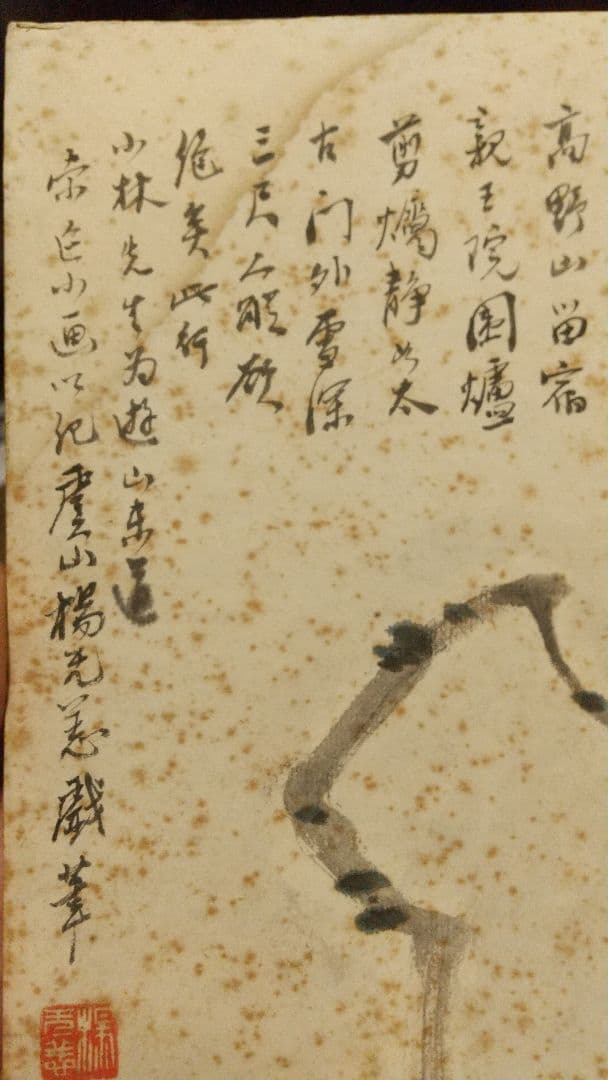 高野山留宿
親王院圍爐
剪燭靜如太
古门外雪深
三尺人
絶矣此行
小林先生为遊山東道
索画小画以纪虞山楊无恙戲筆
楊
无恙